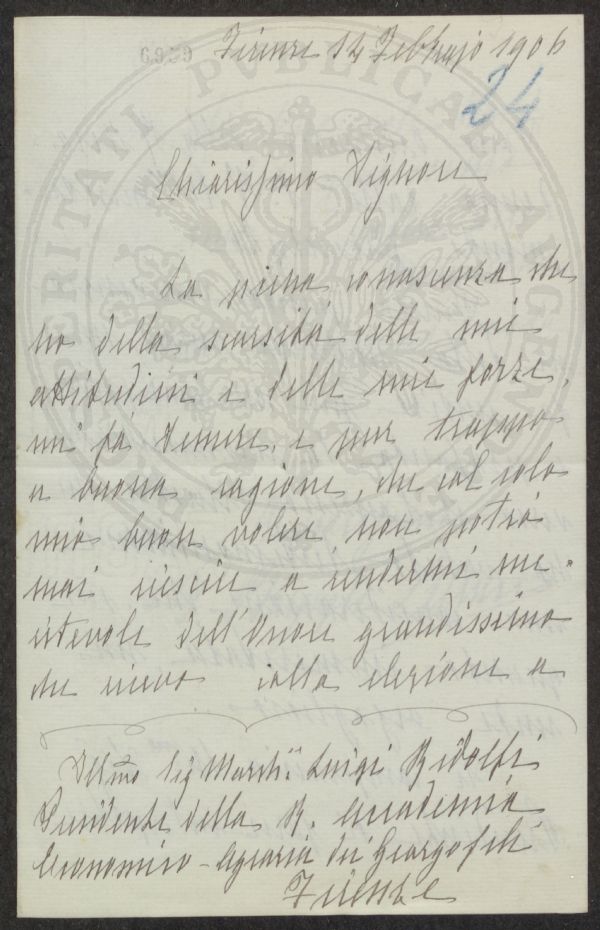 6959
Firenze 12 Febbrajo 1906
24
PROSPERITATI PVBLICAE AVGENDAE
Chiarissimo Signore
La piena conoscenza che
ho della scarsità delle mie
attitudini e delle mie forze,
mi fà temere, e pur troppo
a buona ragione, che col solo
mio buon volere non potrò
mai riescire a rendermi me-
ritevole dell'Onore grandissimo
che ricevo colla elezione a
Illmo Sig March: Luigi Ridolfi
Presidente della R. Accademia
Economico-Agraria dei Georgofili
Firenze